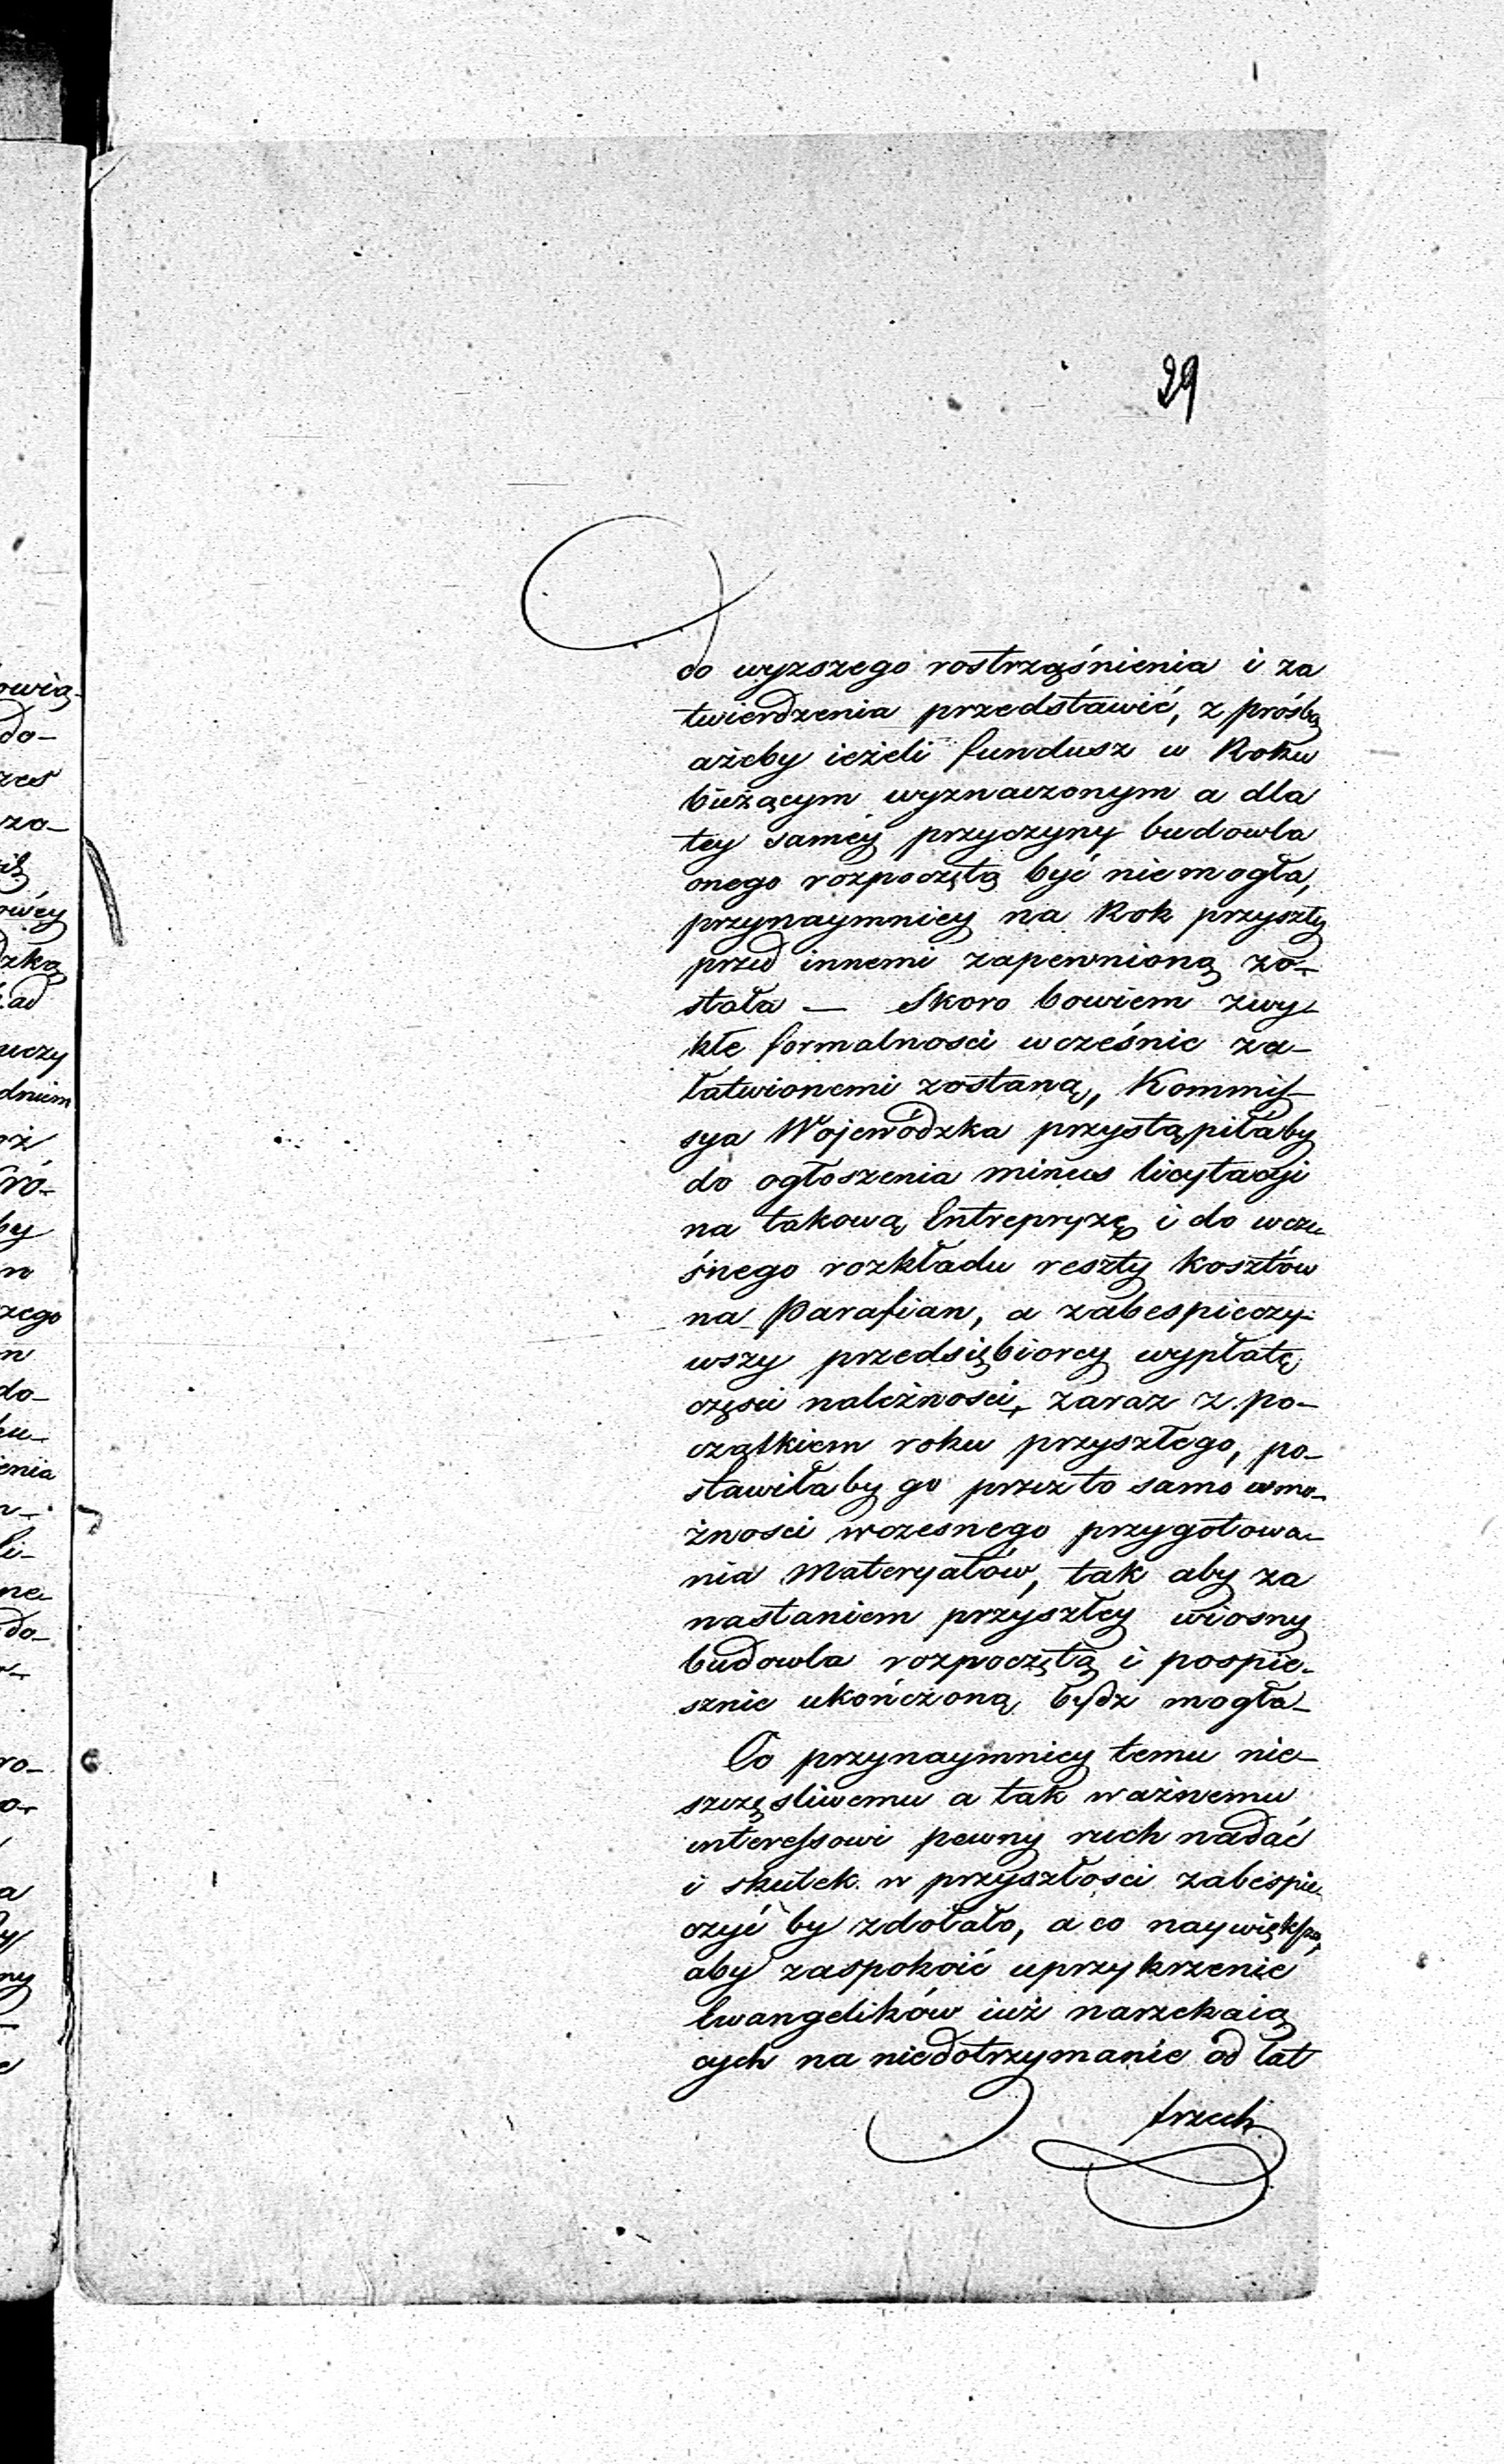 29
do wyższego rostrząśnienia i za
twierdzenia przedstawić, z prośbą
ażeby ieżeli fundusz w Roku
bieżącym wyznaczonym a dla
tey saméy przyczyny budowla
onego rozpoczętą być niemogła,
przynaymniey na Rok przyszły
przed innemi zapewnioną zo-
stała — Skoro bowiem zwy-
kłe formalności wcześnie za-
łatwionemi zostaną, Kommis-
sya Wojewódzka przystąpiłaby
do ogłoszenia minus licytacji
na takową Entrepryzę i do wcze
śnego rozkładu reszty kosztów
na Parafian, a zabespieczy-
wszy przedsiębiorcy wypłatę
części należności, zaraz z po-
czątkiem roku przyszłego, po-
stawiłaby go przez to samo w mo-
żności wczesnego przygotowa-
nia Materyałów, tak aby za
nastaniem przyszłey wiosny
budowla rozpoczętą i pospie-
sznie ukończoną bydz mogła-
Co przynaymniey temu nie-
szczęśliwemu a tak ważnemu
interessowi pewny ruch nadać
i skutek w przyszłości zabespie-
czyć by zdołało, a co naywiększa,
aby zaspokoić uprzykrzenie
Ewangelików iuż narzekaią
cych na niedotrzymanie od lat
trzech